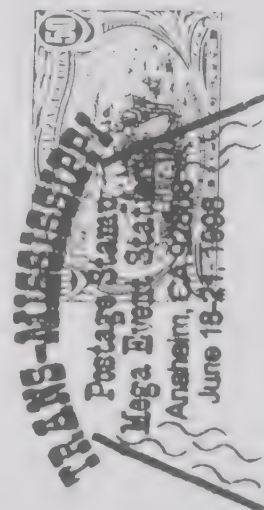 TRANS-MISSISSIPPI
Postage Stamp
Mega Event Station
Anaheim, CA
June 18-21, 1998
50